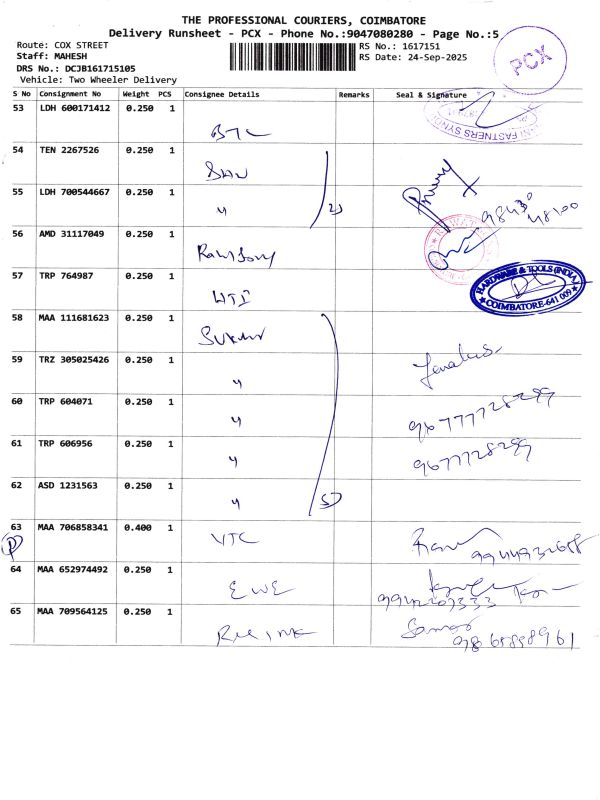 THE PROFESSIONAL COURIERS, COIMBATORE
Delivery Runsheet - PCX - Phone No.:9047080280 - Page No.:5
Route: COX STREET
Staff: MAHESH
DRS No.: DCJB161715105
Vehicle: Two Wheeler Delivery
RS No.: 1617151
RS Date: 24-Sep-2025
PCX
S No Consignment No Weight PCS Consignee Details Remarks Seal & Signature
53 LDH 600171412 0.250 1
FASTNERS SYND
54 TEN 2267526 0.250 1
55 LDH 700544667 0.250 1 " 2)
56 AMD 31117049 0.250 1
57 TRP 764987 0.250 1 HTI
HARDWARE & TOOLS (INDIA)
COIMBATORE-641 009
58 MAA 111681623 0.250 1
59 TRZ 305025426 0.250 1 "
60 TRP 604071 0.250 1 " 9677728299
61 TRP 606956 0.250 1 " 9677728299
62 ASD 1231563 0.250 1 " 5)
63 MAA 706858341 0.400 1 VTC
P
64 MAA 652974492 0.250 1 EWE
65 MAA 709564125 0.250 1